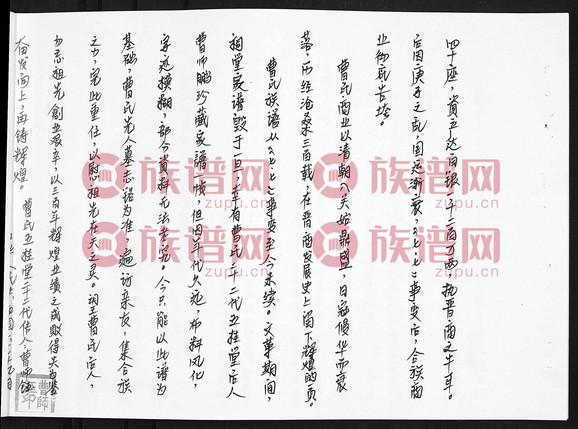 四十座，資产达白银一千二百万两，执晋商之牛耳。
后因庚子之乱，国运渐衰，《七·七》事变后，合族商
业彻底告垮。
曹氏商业以清朝入关始鼎盛，日寇侵华而衰
落，历经沧桑三百载，在晋商发展史上留下辉煌的页。
曹氏族谱从《七·七》事变至今未续。文革期间，
祠堂家谱毁于一旦，幸有曹氏二十二代五桂堂后人
曹师鹏珍藏家谱一帧，但因年代久远，布料风化
字迹模糊，部分資料无法考究。今只能以此谱为
基础，曹氏先人墓志铭为准，遍访亲友，集合族
之力，完此重任，以慰祖先在天之灵。望曹氏后人，
勿忘祖先創业艰辛，以三百年辉煌业绩之成败得失为鉴
奋发向上，再铸辉煌。
曹氏五桂堂二十二代传人：曹师
族谱网
www.zupu.cn